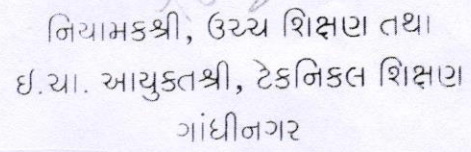 નિયામકશ્રી, ઉચ્ચ શિક્ષણ તથા
ઇ.ચા. આયુક્તશ્રી, ટેકનિકલ શિક્ષણ
ગાંધીનગર